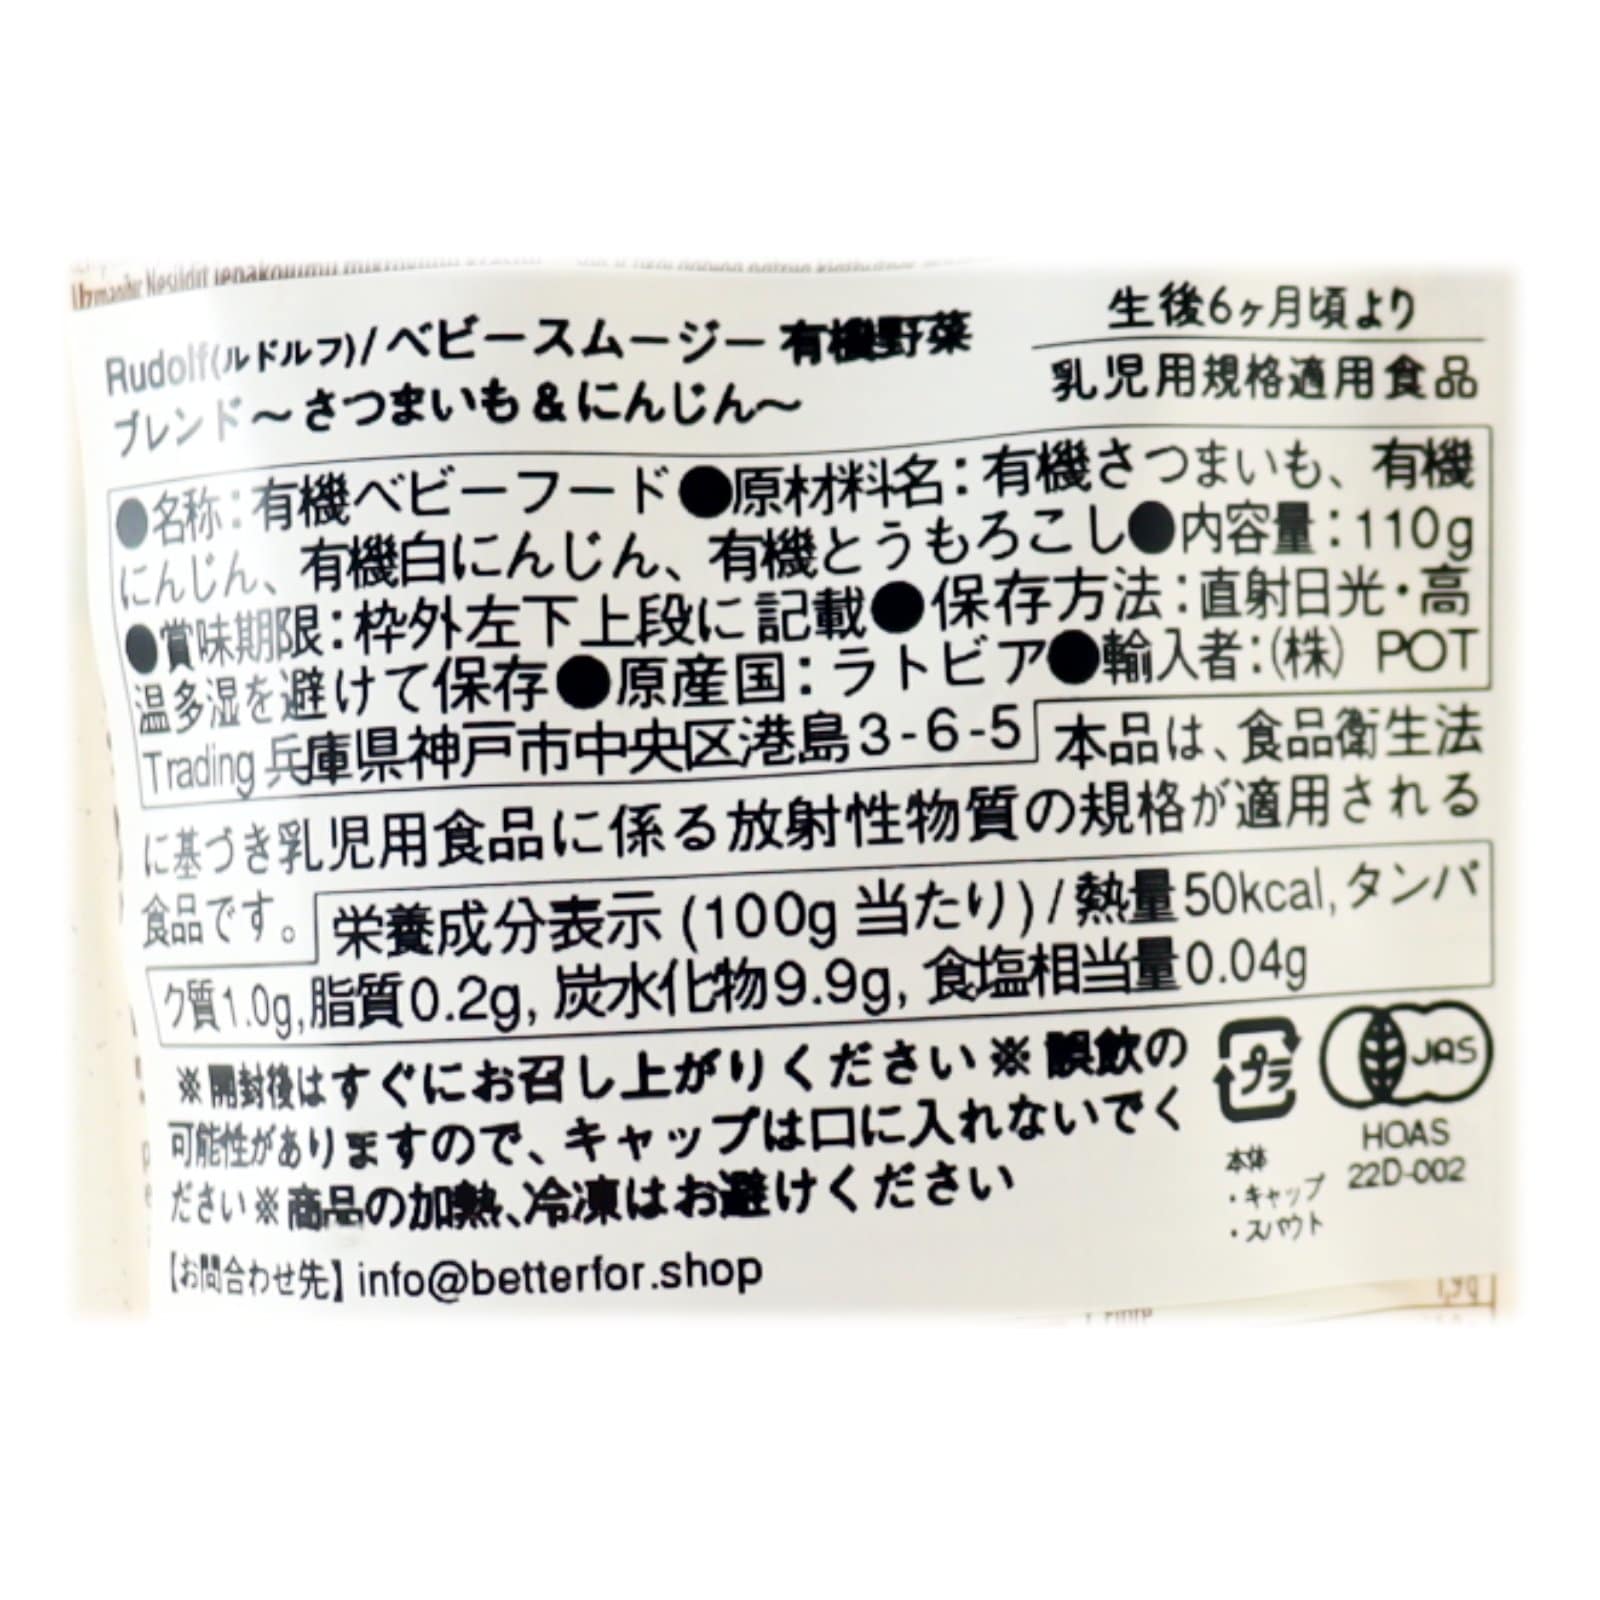 Uzmanību: Nesildīt iepakojumu mikroviļņu krāsnī.
Rudolf(ルドルフ)/ベビースムージー 有機野菜
ブレンド～さつまいも&にんじん～
生後6ヶ月頃より
乳児用規格適用食品
●名称:有機ベビーフード●原材料名:有機さつまいも、有機
にんじん、有機白にんじん、有機とうもろこし●内容量:110g
●賞味期限:枠外左下上段に記載●保存方法:直射日光・高
温多湿を避けて保存●原産国:ラトビア●輸入者:(株) POT
Trading 兵庫県神戸市中央区港島3-6-5
本品は、食品衛生法
に基づき乳児用食品に係る放射性物質の規格が適用される
食品です。
栄養成分表示 (100g 当たり) / 熱量50kcal, タンパ
ク質1.0g, 脂質0.2g, 炭水化物9.9g, 食塩相当量0.04g
※開封後はすぐにお召し上がりください※誤飲の
可能性がありますので、キャップは口に入れないでく
ださい※商品の加熱、冷凍はお避けください
【お問合わせ先】info@betterfor.shop
プラ
本体
・キャップ
・スパウト
JAS
HOAS
22D-002
1,9g